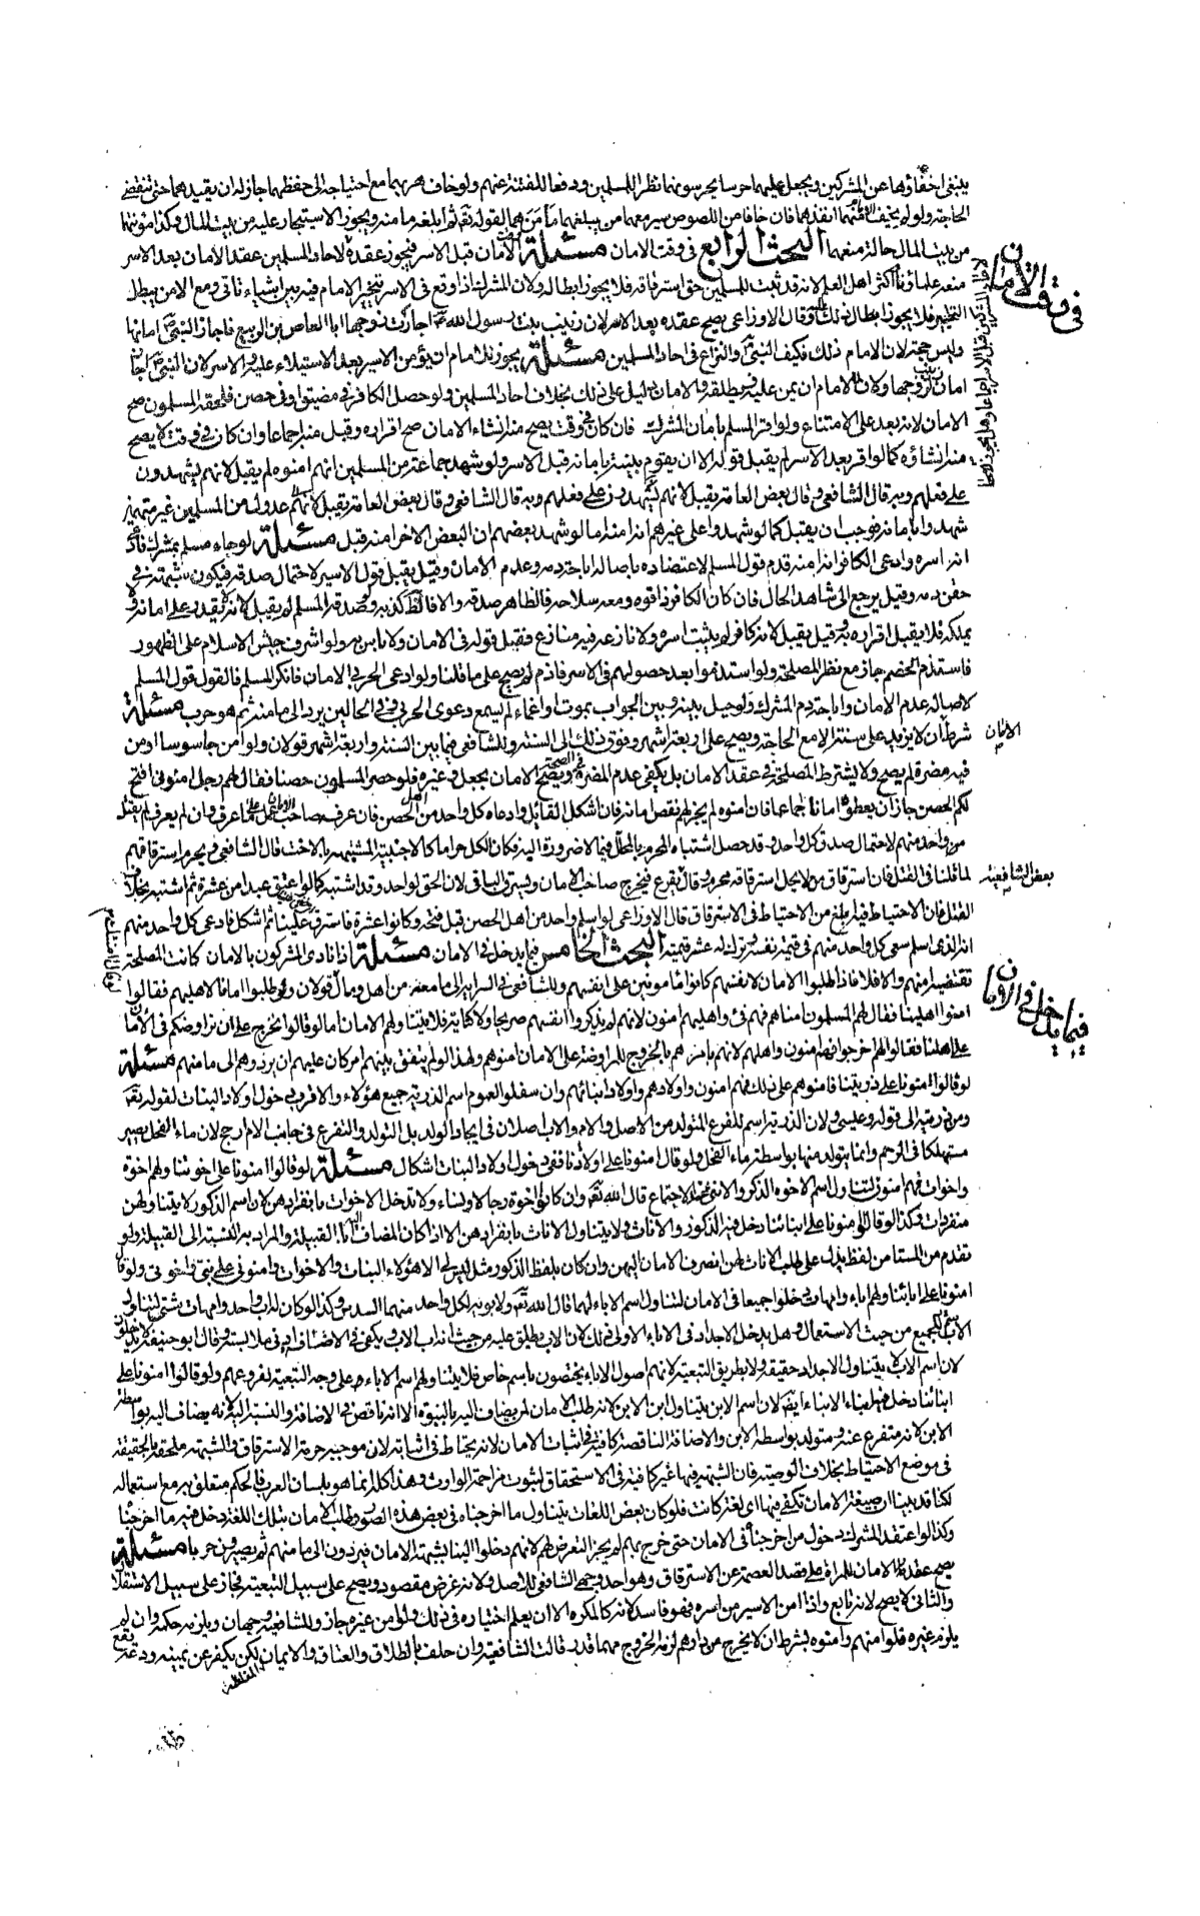 ينبغى اخفاؤها عن المشركين ويجعل عليهما حرسا يحرسونهما نظرا للمسلمين ودفعا للفتنة عنهم ولو خاف هربهما مع احتياجه الى حفظهما جاز له ان يقيدهما حتى تنقضى
الحاجة ولو لم يخف انفذهما فان خافا من اللصوص سير معهما من يبلغهما مأمنهما لقوله تعالى ثم ابلغه مأمنه ويجوز الاستيجار عليه من بيت المال وكذا مؤنتهما
من بيت المال حالة منعهما البحث الرابع فى وقت الامان مسئلة الامان قبل الاسر فيجوز عقده لاحاد المسلمين عقد الامان بعد الاسر
منعه علماؤنا اكثر اهل العلم لانه قد ثبت للمسلمين حق استرقاقه فلا يجوز ابطاله ولان المشرك اذا وقع فى الاسر يتخير الامام فيه بين اشياء تاتى ومع الامن يبطل
التخيير فلا يجوز ابطال ذلك وقال الاوزاعى يصح عقده بعد الاسر لان زينب بنت رسول الله اجارت زوجها ابا العاص بن الربيع فاجاز النبى امانها
وليس حجة لان الامام ذلك فكيف النبى والنزاع فى احاد المسلمين مسئلة يجوز للامام ان يؤمن الاسير بعد الاستيلاء عليه والاسر لان النبى اجاز
امان زينب لزوجها ولان للامام ان يمن عليه فيطلقه والامان دليل على ذلك بخلاف احاد المسلمين ولو حصل الكافر فى مضيق او فى حصن فلحقه المسلمون صح
الامان لانه بعد على الامتناع ولو اقر المسلم بامان المشرك فان كان فى وقت يصح منه انشاء الامان صح اقراره وقبل منه اجماعا وان كان فى وقت لا يصح
منه انشاؤه كما لو اقر بعد الاسر لم يقبل قوله الا ان يقوم بينة بامانه قبل الاسر ولو شهد جماعة من المسلمين انهم امنوه لم يقبل لانهم يشهدون
على فعلهم وبه قال الشافعى وقال بعض العامة يقبل لانهم عدول من المسلمين غير متهمين
شهدوا بامانه فوجب ان يقبل كما لو شهدوا على غيرهم انه امنه اما لو شهد بعضهم ان البعض الاخر امنه قبل مسئلة لو جاء مسلم بمشرك فادعى
انه اسره وادعى الكافر انه امنه قدم قول المسلم لاعتضاده باصالة اباحة دمه وعدم الامان وقيل يقبل قول الاسير لاحتمال صدقه فيكون شبهة فى
حقن دمه وقيل يرجع الى شاهد الحال فان كان الكافر ذا قوة ومعه سلاحه فالظاهر صدقه والا فالظاهر كذبه ولو صدقه المسلم لم يقبل لانه لا يقدر على امانه ولا
يملكه فلا يقبل اقراره به وقيل يقبل لانه كافر لم يثبت اسره ولا نازعه فيه منازع فقبل قوله فى الامان ولا باس به ولو اشرف جيش الاسلام على الظهور
فاستذم الخصم جاز مع نظر المصلحة ولو استذموا بعد حصولهم فى الاسر فاذم لم يصح على ما قلناه ولو ادعى الحربى الامان فانكر المسلم فالقول قول المسلم
لاصالة عدم الامان واباحة دم المشرك ولو حيل بينه وبين الجواب بموت او اغماء لم يسمع دعوى الحربى وفى الحالين يرد الى مامنه ثم هو حرب مسئلة
شرط الامان ان لا يزيد على سنة الا مع الحاجة ويصح على اربعة اشهر وفوق ذلك الى السنة وللشافعى فيما بين السنة واربعة اشهر قولان ولو امن جاسوسا او من
فيه مضرة لم يصح ولا يشترط المصلحة فى عقد الامان بل يكفى عدم المضرة فى الصحة ويصح الامان بجعل وغيره فلو حصر المسلمون حصنا فقال لهم رجل امنونى افتح
لكم الحصن جاز ان يعطوه امانا اجماعا فان امنوه لم يجز لهم نقض امانه فان اشكل القائل وادعاه كل واحد من اهل الحصن فان عرف صاحب الامان عمل على ما عرف وان لم يعرف لم يقتل
من واحد منهم لاحتمال صدق كل واحد وقد حصل اشتباه المحرم بالمحلل فيما لا ضرورة اليه فكان الكل حراما كالاجنبية المشتبهة بالاخت قال الشافعى ويحرم استرقاقهم
لما قلناه فى القتل فان استرقاق من لا يحل استرقاقه محرم وقال يقرع فيخرج صاحب الامان ويسترق الباقى لان الحق لواحد وقد اشتبه كما لو اعتق عبدا من عشرة ثم اشتبه بخلاف
القتل فان الاحتياط فيه ابلغ من الاحتياط فى الاسترقاق قال الاوزاعى لو اسلم واحد من اهل الحصن قبل فتحه وكانوا عشرة فاسترق علينا ثم اشكل فادعى كل واحد منهم
انه الذى اسلم سعى كل واحد منهم فى قيمة نفسه وترك له عشر قيمته البحث الخامس فيما يدخل فى الامان مسئلة اذا نادى المشركون بالامان كانت المصلحة
تقتضيه امنهم والا فلا فاذا طلبوا الامان لانفسهم كانوا مامونين على انفسهم وللشافعى فى السراية الى ما معه من اهل ومال قولان ولو طلبوا امانا لاهليهم فقالوا
امنوا اهلينا فقال لهم المسلمون امناهم فهم فىء واهليهم امنون لانهم لم يذكروا انفسهم صريحا ولا كناية فلا يتناولهم الامان اما لو قالوا نخرج على ان نراوضكم فى الامان
على اهلنا فقالوا لهم اخرجوا فهم امنون واهلهم لانهم بامرهم بالخروج للمراوضة على الامان امنوهم ولهذا لو لم يتفق بينهم امر كان عليهم ان يردوهم الى مامنهم مسئلة
لو قالوا امنونا على ذريتنا فامنوهم على ذلك فهم امنون واولادهم واولاد ابنائهم وان سفلوا لعموم اسم الذرية جميع هؤلاء والاقرب دخول اولاد البنات لقوله تعالى
ومن ذريته الى قوله وعيسى ولان الذرية اسم للفرع المتولد من الاصل والام والاب اصلان فى ايجاد الولد بل التولد والتفرع فى جانب الام ارجح لان ماء الفحل يصير
مستهلكا فى الرحم وانما يتولد منها بواسطة ماء الفحل ولو قال امنونا على اولادنا ففى دخول اولاد البنات اشكال مسئلة لو قالوا امنونا على اخوتنا ولهم اخوة
واخوات فهم امنون لتناول اسم الاخوة الذكر والانثى عند الاجتماع قال الله تعالى وان كانوا اخوة رجالا ونساء ولا تدخل الاخوات بانفرادهن لان اسم الذكور لا يتناولهن
منفردات وكذا لو قالوا امنونا على ابنائنا دخل فيه الذكور والاناث ولا يتناول الاناث بانفرادهن الا اذا كان المضاف اليه ابا القبيلة والمراد به النسبة الى القبيلة ولو
تقدم من المستامن لفظ يدل على طلب الاناث لهن انصرف الامان اليهن وان كان بلفظ الذكور مثل ليس لى الا هؤلاء البنات والاخوات وامنونى على بنى واخوتى ولو قال
امنونا على ابائنا ولهم اباء وامهات دخلوا جميعا فى الامان لتناول اسم الاباء لهما قال الله تعالى ولابويه لكل واحد منهما السدس وكذا لو كان لهم اب واحد وامهات شتى لتناول
الاب للجميع من حيث الاستعمال وهل يدخل الاجداد فى الاباء الاولى ذلك لان الاب يطلق عليه من حيث انه اب الاب ويكفى فى الاضافة ادنى ملابسة وقال ابو حنيفة لا يدخلون
لان اسم الاب لا يتناول الاجداد حقيقة ولا بطريق التبعية لانهم اصول الاباء يختصون باسم خاص فلا يتناولهم اسم الاباء على وجه التبعية لفروعهم ولو قالوا امنونا على
ابنائنا دخل فيه ابناء الابناء ايضا لان اسم الابن يتناول ابن الابن لانه طلب الامان لمن يضاف اليه بالبنوة الا انه ناقص فى الاضافة والنسبة اليه لانه يضاف اليه بواسطة
الابن لانه متفرع عنه ومتولد بواسطة الابن والاضافة الناقصة كافية فى اثبات الامان لانه يحتاط فى اثباته لان موجبه حرمة الاسترقاق والشبهة ملحقة بالحقيقة
فى موضع الاحتياط بخلاف الوصية فان الشبهة فيها غير كافية فى الاستحقاق لثبوت مزاحمة الوارث وهذا كله انما هو بلسان العرب فالحكم متعلق به مع استعماله
لكنا قد بينا ان صيغة الامان تكفى فيها اى لغة كانت فلو كان بعض اللغات يتناول ما اخرجناه فى بعض هذه الصور وطلب الامان بتلك اللغة دخل فيه ما اخرجناه
وكذا لو اعتقد المشرك دخول من اخرجناه فى الامان حتى خرج بهم لم يجز التعرض لهم لانهم دخلوا الينا بشبهة الامان فيردون الى مامنهم ثم يصيرون حربا مسئلة
يصح عقد الامان للمراة على قصد العصمة عن الاسترقاق وهو احد وجهى الشافعى للاصل ولانه غرض مقصود ويصح على سبيل التبعية فجاز على سبيل الاستقلال
والثانى لا يصح لانه تابع واذا امن الاسير من اسره فهو فاسد لانه كالمكره الا ان يعلم اختياره فى ذلك ولو امن غيره جاز وللشافعية وجهان ويلزمه حكمه وان لم
يلزم غيره فلو امنهم وامنوه بشرط ان لا يخرج من دارهم لزمه الخروج مهما قدر قالت الشافعية وان حلف بالطلاق والعتاق والايمان لكن يكفر عن يمينه
فى وقت الامان
الامان
بعض الشافعية
فيما يدخل فى الامان